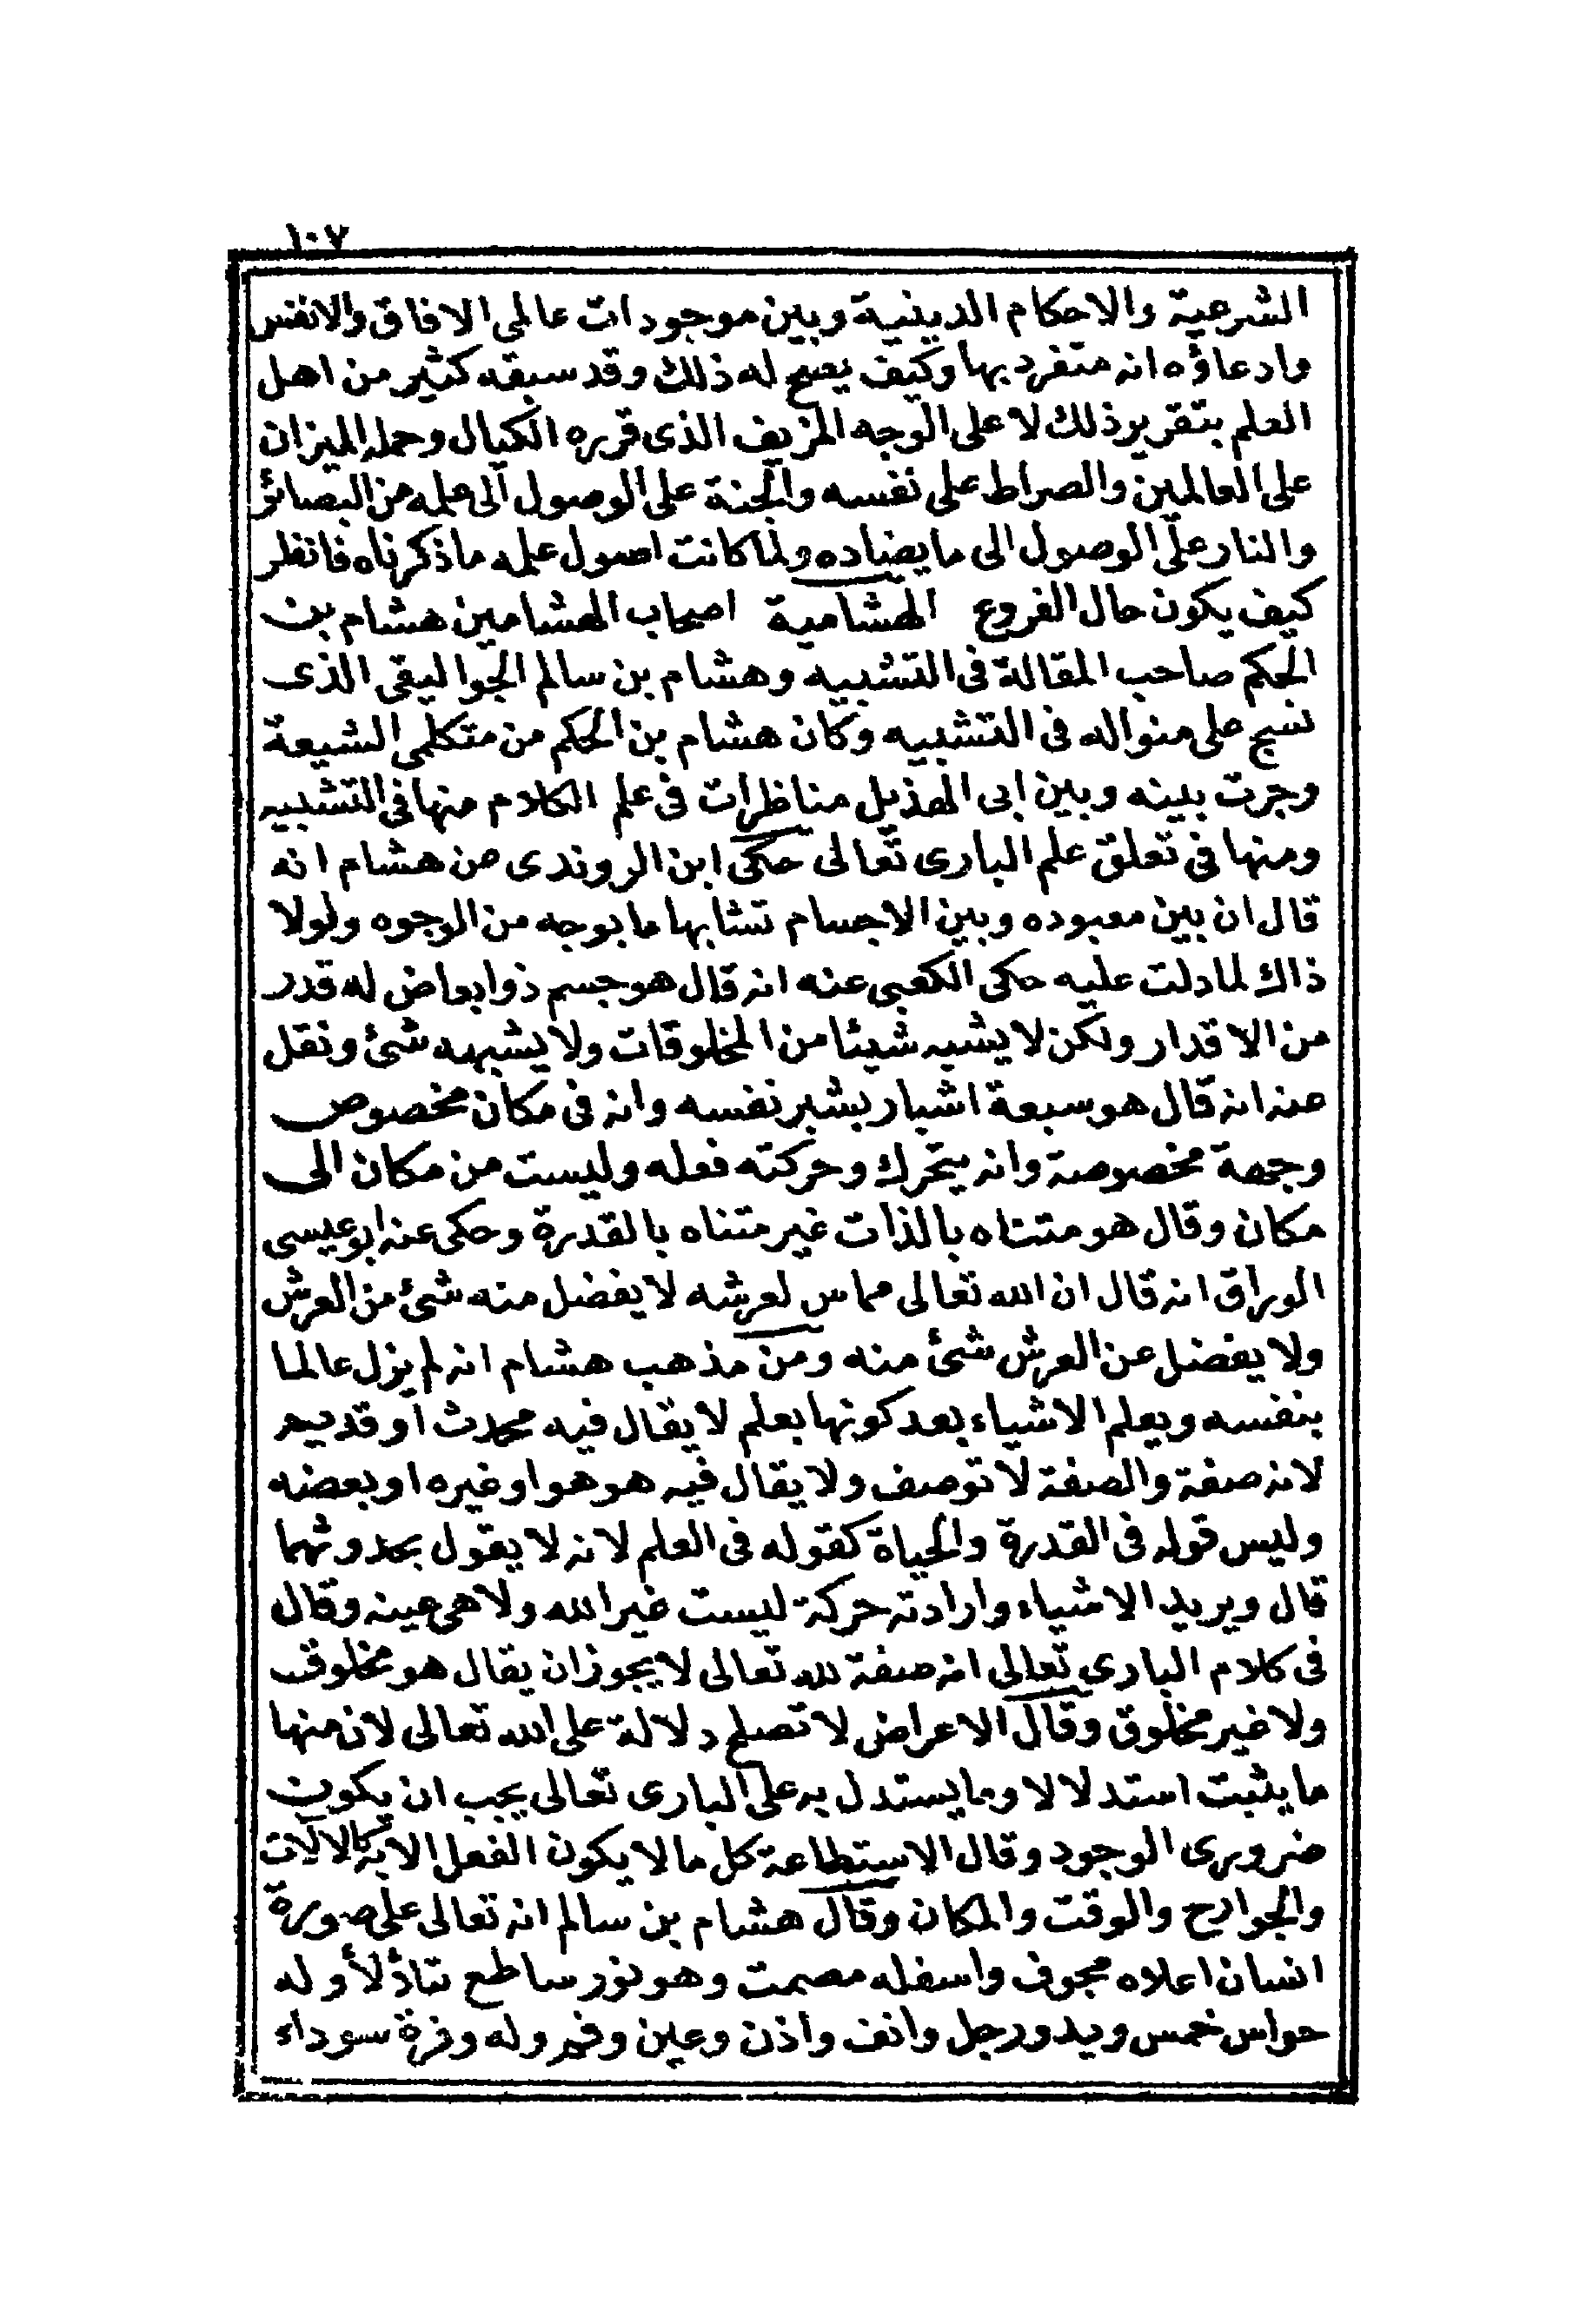 ١٠٧
الشرعية والاحكام الدينية وبين موجودات عالمى الافاق والانفس
وادعاؤه انه متفرد بها وكيف يصح له ذلك وقد سبقه كثير من اهل
العلم بتقرير ذلك لا على الوجه المزيف الذى قرره الكيال وحمله الميزان
على العالمين والصراط على نفسه والجنة على الوصول الى علمه من البصائر
والنار على الوصول الى ما يضاده ولما كانت اصول علمه ما ذكرناه فانظر
كيف يكون حال الفروع الهشامية اصحاب الهشامين هشام بن
الحكم صاحب المقالة فى التشبيه وهشام بن سالم الجواليقى الذى
نسج على منواله فى التشبيه وكان هشام بن الحكم من متكلمى الشيعة
وجرت بينه وبين ابى الهذيل مناظرات فى علم الكلام منها فى التشبيه
ومنها فى تعلق علم البارى تعالى حكى ابن الروندى عن هشام انه
قال ان بين معبوده وبين الاجسام تشابها ما بوجه من الوجوه ولولا
ذاك لما دلت عليه حكى الكعبى عنه انه قال هو جسم ذو ابعاض له قدر
من الاقدار ولكن لا يشبه شيئا من المخلوقات ولا يشبهه شئ ونقل
عنه انه قال هو سبعة اشبار بشبر نفسه وانه فى مكان مخصوص
وجهة مخصوصة وانه يتحرك وحركته فعله وليست من مكان الى
مكان وقال هو متناه بالذات غير متناه بالقدرة وحكى عنه ابو عيسى
الوراق انه قال ان الله تعالى مماس لعرشه لا يفضل منه شئ من العرش
ولا يفضل عن العرش شئ منه ومن مذهب هشام انه لم يزل عالما
بنفسه ويعلم الاشياء بعد كونها بعلم لا يقال فيه محدث او قديم
لانه صفة والصفة لا توصف ولا يقال فيه هو هو او غيره او بعضه
وليس قوله فى القدرة والحياة كقوله فى العلم لانه لا يقول بحدوثهما
قال ويريد الاشياء وارادته حركة ليست غير الله ولا هى عينه وقال
فى كلام البارى تعالى انه صفة لله تعالى لا يجوز ان يقال هو مخلوق
ولا غير مخلوق وقال الاعراض لا تصلح دلالة على الله تعالى لان منها
ما يثبت استدلالا وما يستدل به على البارى تعالى يجب ان يكون
ضرورى الوجود وقال الاستطاعة كل ما لا يكون الفعل الا به كالالات
والجوارح والوقت والمكان وقال هشام بن سالم انه تعالى على صورة
انسان اعلاه مجوف واسفله مصمت وهو نور ساطع يتلألأ وله
حواس خمس ويد ورجل وانف واذن وعين وفم وله وفرة سوداء